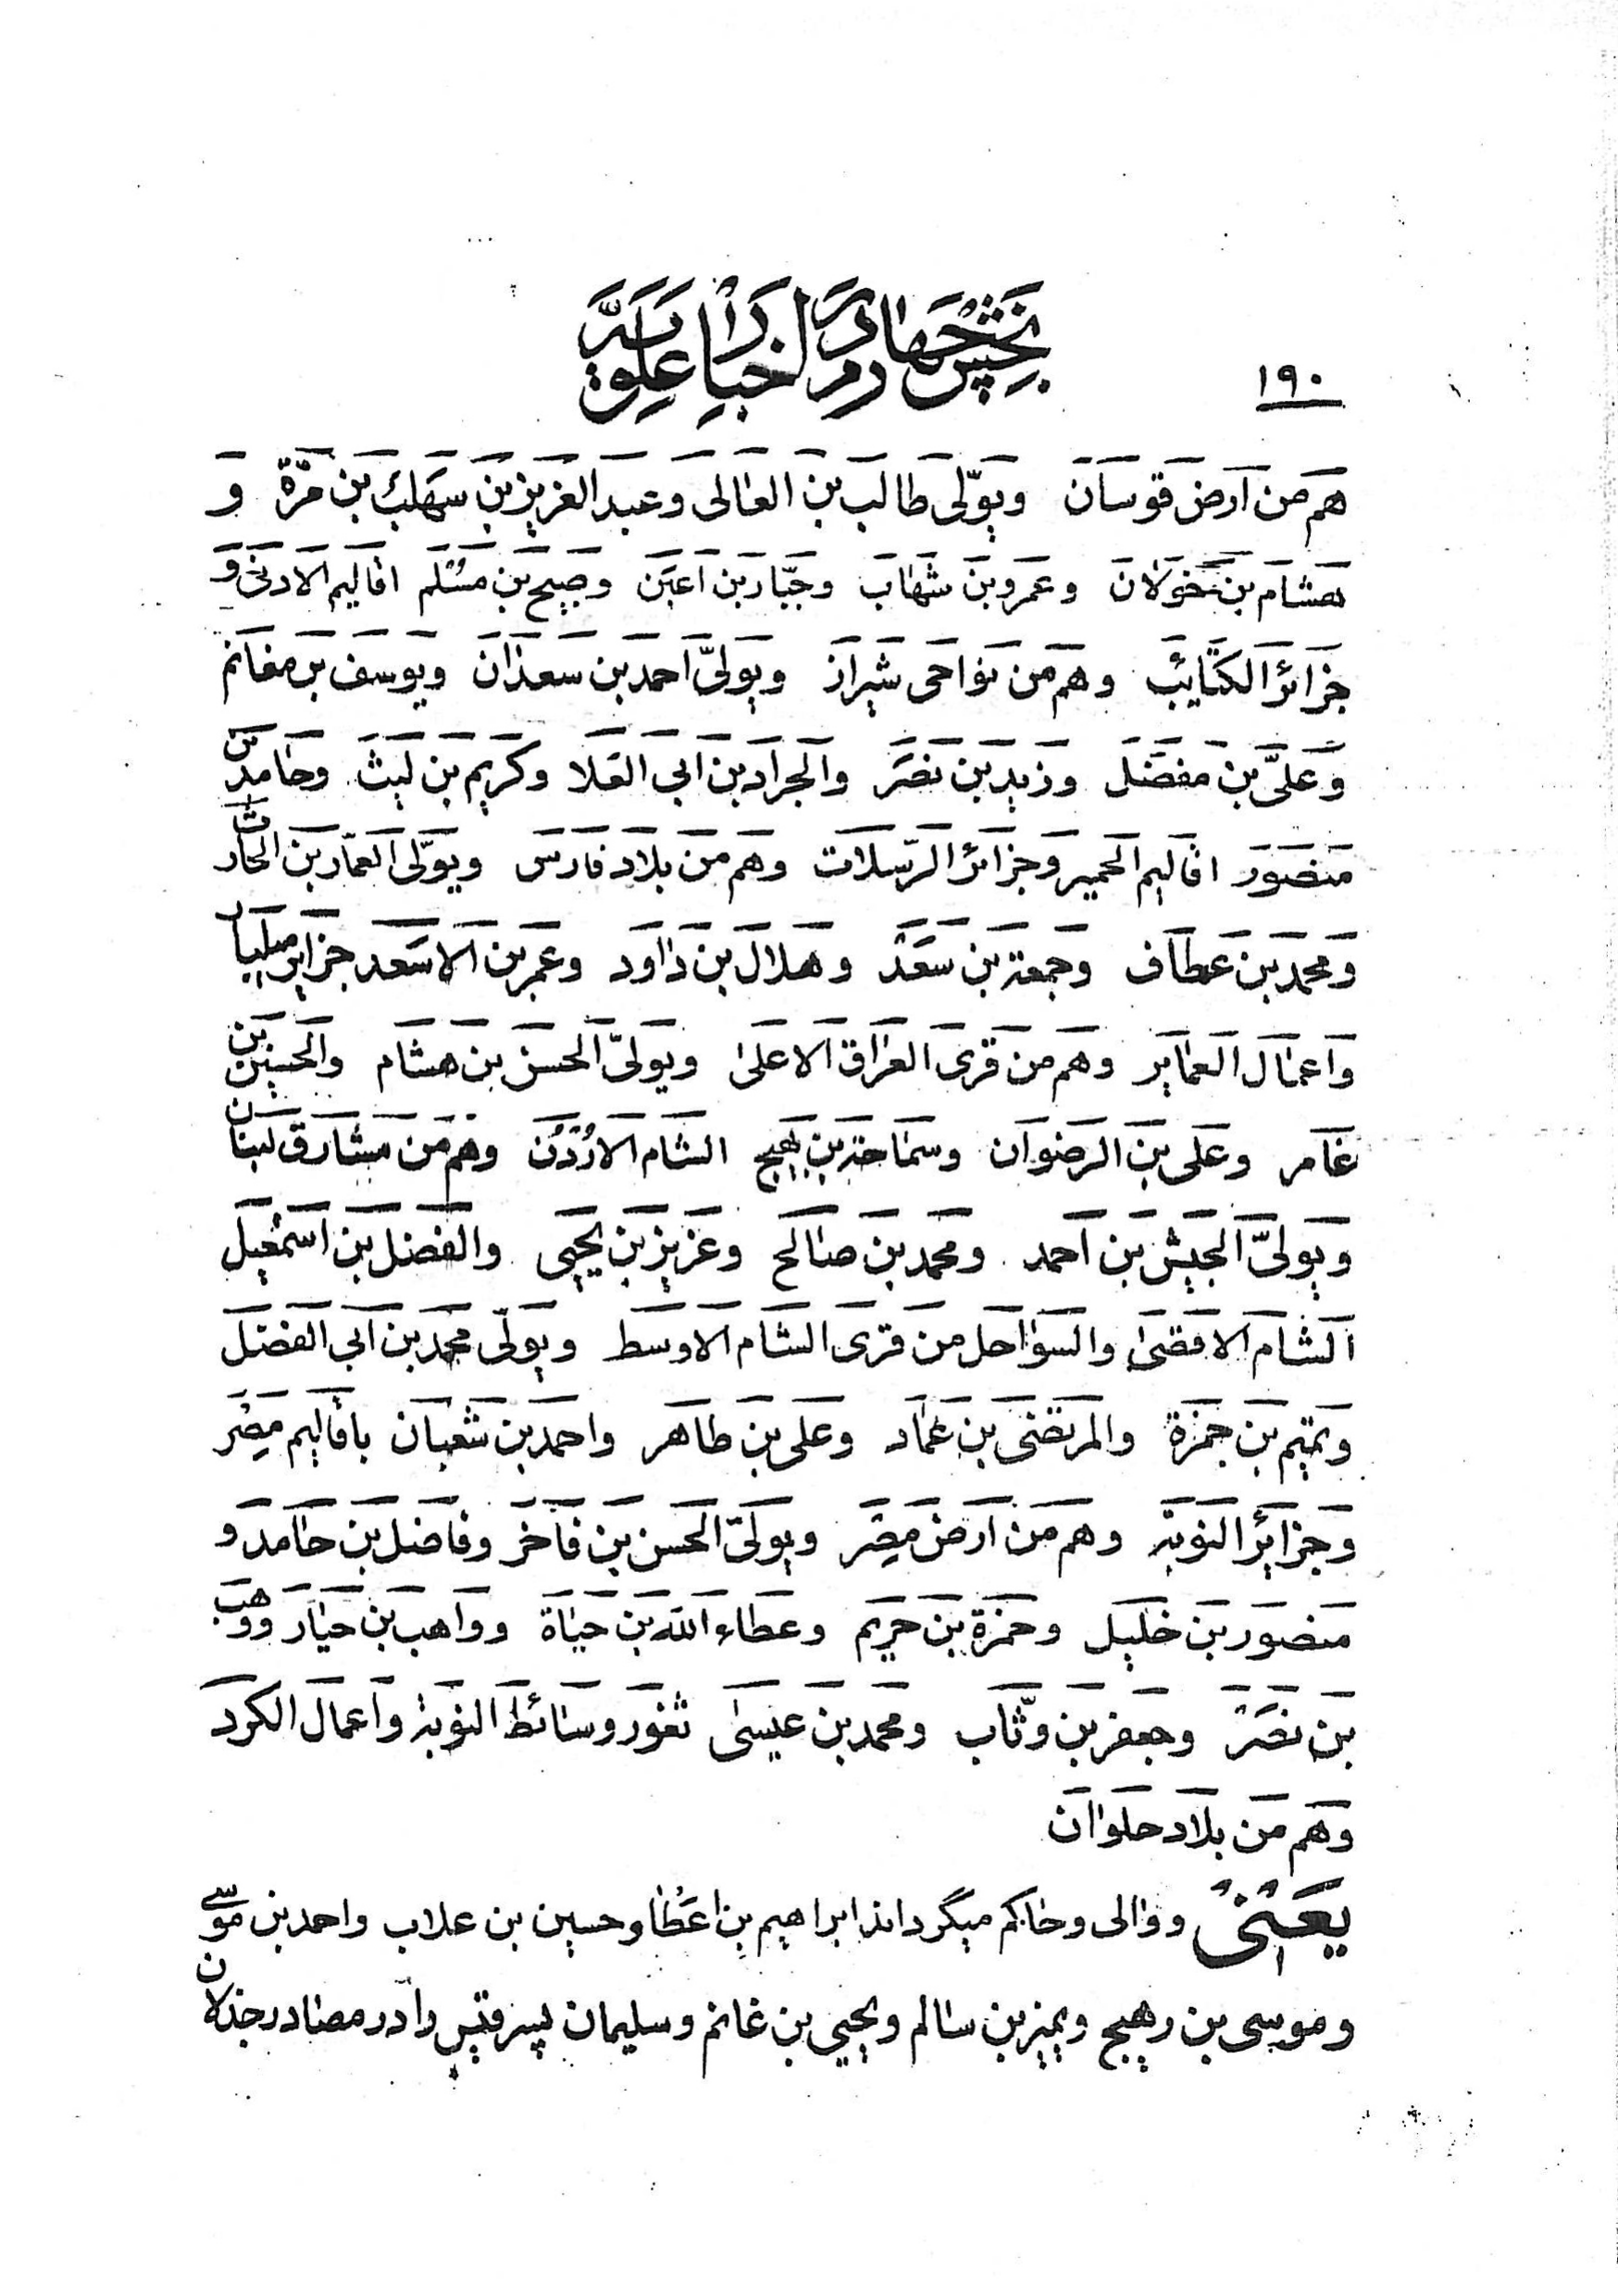 بخش چهارم در اخبار علویه
۱۹۰
هم من ارض قوسان ویولی طالب بن العالی وعبد العزیز بن سهلب بن مرة و
هشام بن خولان وعمرو بن شهاب وجبار بن اعین وصبیح بن مسلم اقالیم الادنی و
جزائر الکتایب وهم من نواحی شیراز ویولی احمد بن سعدان ویوسف بن مغانم
وعلی بن مفضل وزید بن نصر والجراد بن ابی العلا وکریم بن لیث وحامد بن
منصور اقالیم الحمیر وجزائر الرسلات وهم من بلاد فارس ویولی العمار بن الحارث
ومحمد بن عطاف وجمعة بن سعد وهلال بن داود وعمر بن الاسعد جزایر ملیبار
واعمال العمایر وهم من قری العراق الاعلی ویولی الحسن بن هشام والحسین بن
غامر وعلی بن الرضوان وسماحة بن بهیج الشام الاردن وهم من مشارق لبنان
ویولی الجیش بن احمد ومحمد بن صالح وعزیز بن یحیی والفضل بن اسمعیل
الشام الاقصی والسواحل من قری الشام الاوسط ویولی محمد بن ابی الفضل
وتمیم بن حمزة والمرتضی بن عماد وعلی بن طاهر واحمد بن شعبان باقالیم مصر
وجزایر النوبة وهم من ارض مصر ویولی الحسن بن فاخر وفاضل بن حامد و
منصور بن خلیل وحمزة بن حریم وعطاء الله بن حیاة وواهب بن حیار ووهب
بن نصر وجعفر بن وثاب ومحمد بن عیسی ثغور وسائط النوبة واعمال الکرد
وهم من بلاد حلوان
یعنی ووالی وحاکم میگرداند ابراهیم بن اعطا وحسین بن علاب واحمد بن موسی
وموسی بن رهیج ویمیز بن سالم ویحیی بن غانم وسلیمان پسر قیس را در مصادر جذلان